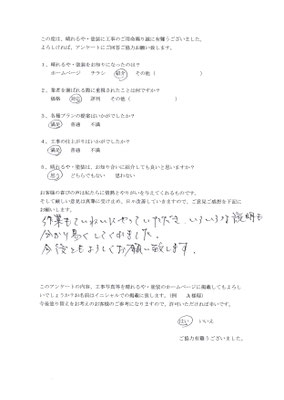 この度は、晴れるや・塗装に工事のご用命賜り誠に有難うございました。
よろしければ、アンケートにご回答ご協力お願い致します。
1、晴れるや・塗装をお知りになったのは?
ホームページ チラシ 紹介 その他（ ）
2、業者を選ばれる際に重視されたことは何ですか?
価格 対応 評判 その他（ ）
3、各種プランの提案はいかがでしたか?
満足 普通 不満
4、工事の仕上がりはいかがでしたか?
満足 普通 不満
5、晴れるや・塗装は、お知り合いに紹介しても良いと思いますか?
思う どちらでもない 思わない
お客様の喜びの声は私たちに勇気とやりがいを与えてくれるものです。
そして厳しい意見は真摯に受け止め、日々改善していきますので、ご意見ご感想を下記に
お願いします。
作業もていねいにやっていただき、いろいろな説明も
分かり易くしてくれました。
今後ともよろしくお願い致します。
このアンケートの内容、工事写真等を晴れるや・塗装のホームページに掲載してもよろし
いでしょうか?お名前はイニシャルでの掲載に致します。（例 A様邸）
今後塗り替えをお考えのお客様のご参考になりますので、許可いただければ幸いです。
はい いいえ
ご協力有難うございました。